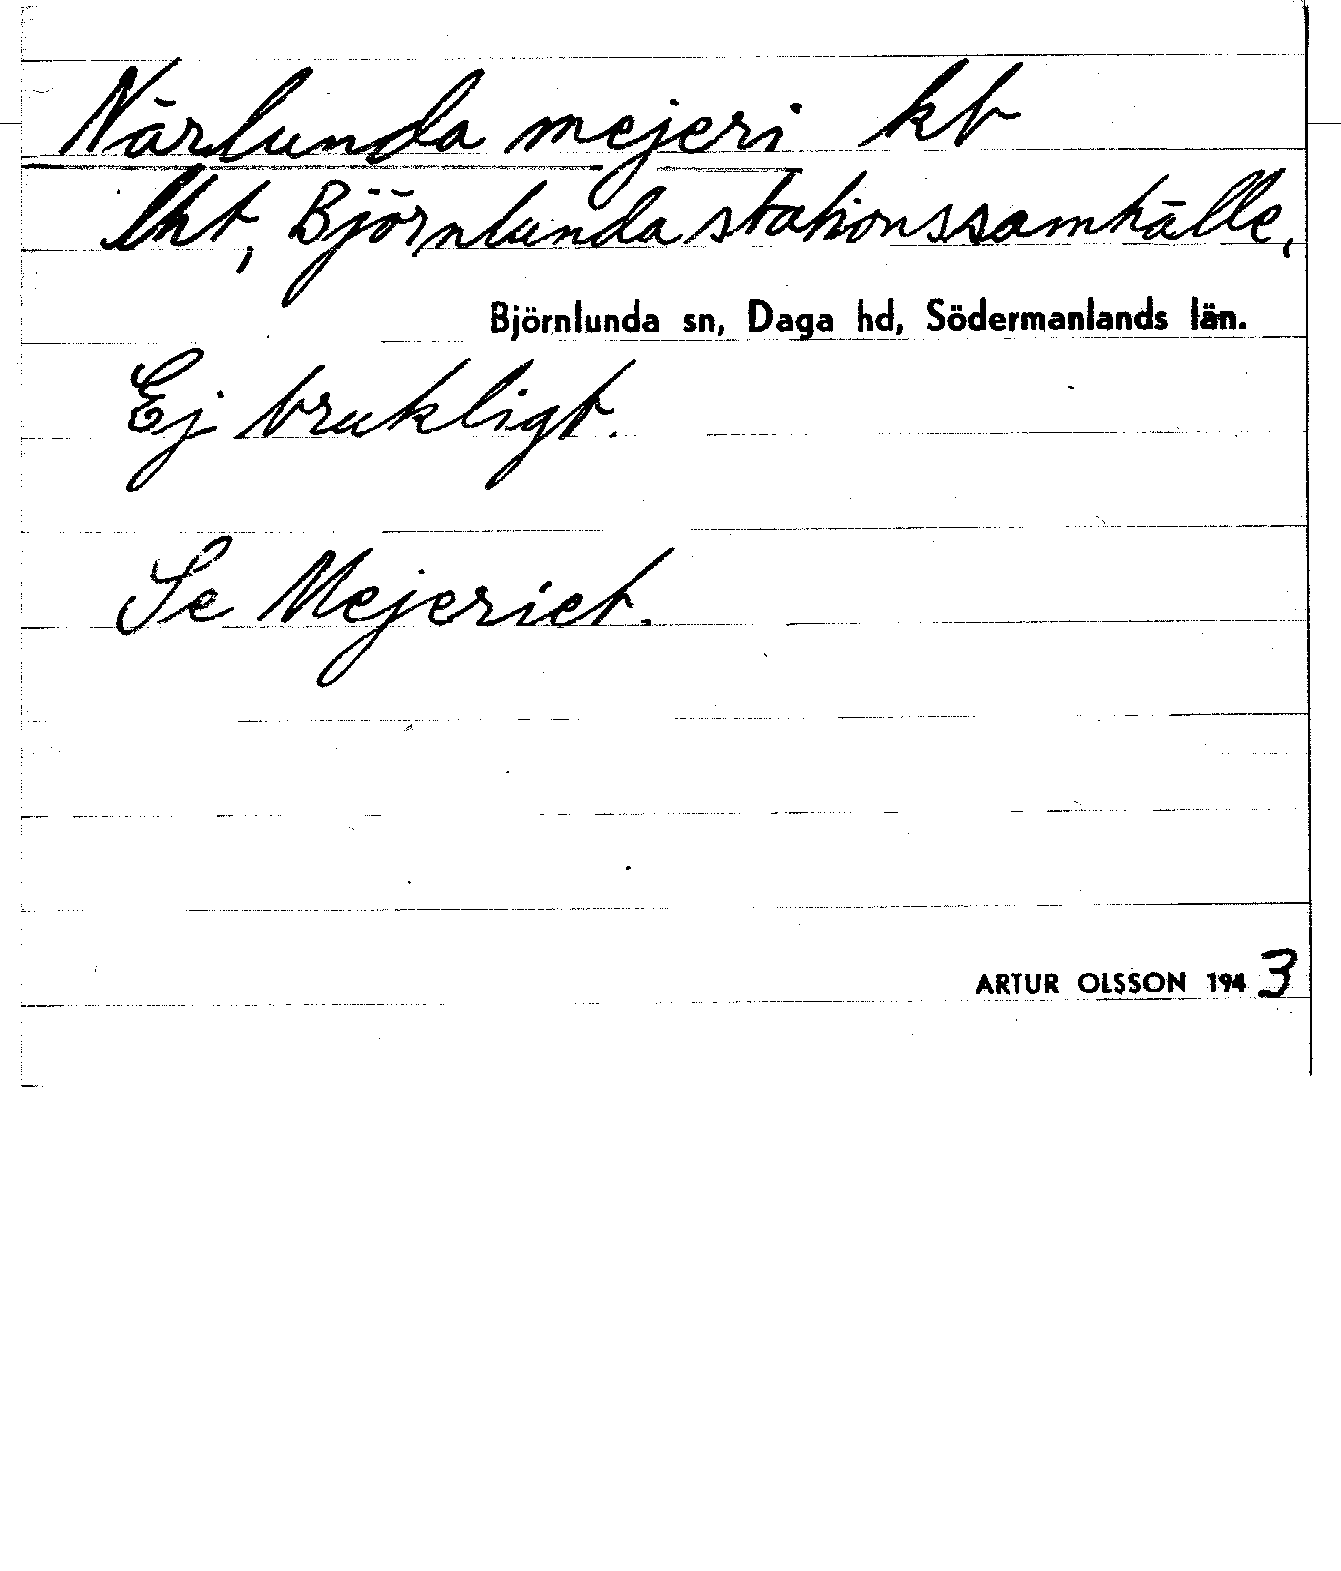 Närlunda mejeri kt
lht, Björnlunda stationssamhälle,
Björnlunda sn, Daga hd, Södermanlands län.
Ej brukligt.
Se Mejeriet.
ARTUR OLSSON 1943